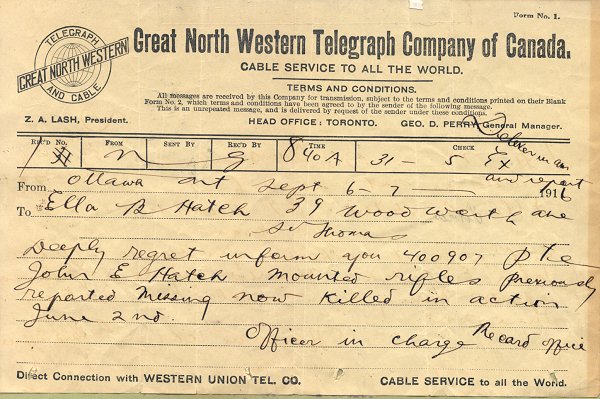 Form No. 1.
TELEGRAPH
GREAT NORTH WESTERN
AND CABLE
Great North Western Telegraph Company of Canada.
CABLE SERVICE TO ALL THE WORLD.
TERMS AND CONDITIONS.
All messages are received by this Company for transmission, subject to the terms and conditions printed on their Blank
Form No. 2, which terms and conditions have been agreed to by the sender of the following message.
This is an unrepeated message, and is delivered by request of the sender under these conditions.
Z. A. LASH, President.
HEAD OFFICE: TORONTO.
GEO. D. PERRY, General Manager.
REC'D NO. FROM SENT BY REC'D BY TIME CHECK
n g 840A 31 - 5 Ex
and report
From Ottawa Ont Sept 6 - 7 1916
To Ella B Hatch 39 Woodworth ave
St Thomas
Deeply regret inform you 400907 Pte
John E Hatch mounted rifles previously
reported missing now killed in action
June 2nd.
Officer in charge Record office
Direct Connection with WESTERN UNION TEL. CO. CABLE SERVICE to all the World.